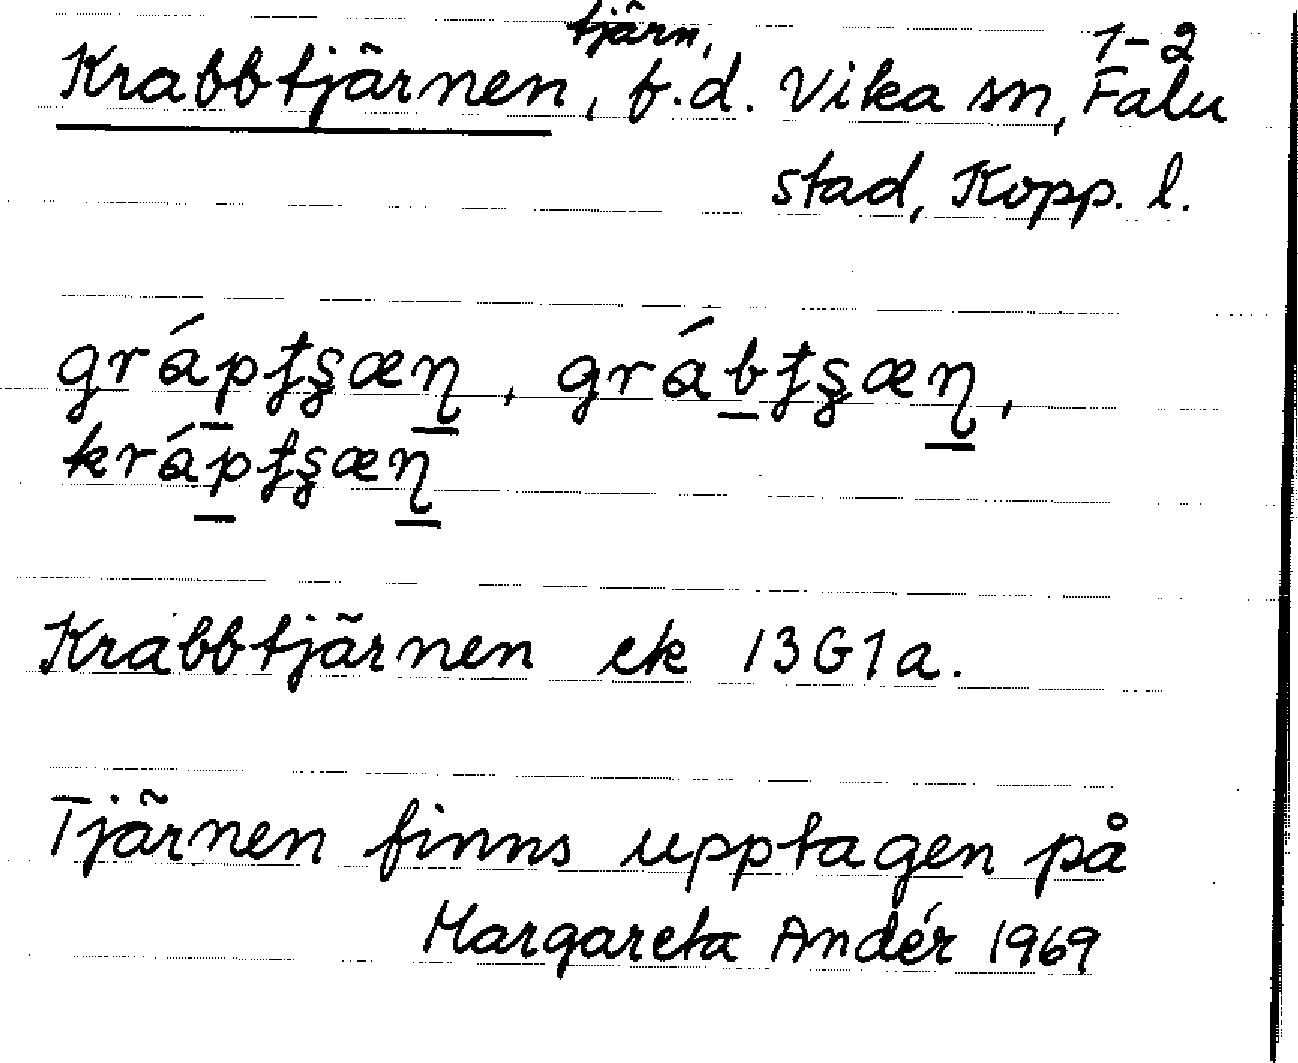 tjärn, 1-2
Krabbtjärnen, f.d. Vika sn, Falu
stad, Kopp. l.
grápʄʂæɳ, grábʄʂæɳ,
krápʄʂæɳ
Krabbtjärnen ek 13G1a.
Tjärnen finns upptagen på
Margareta Andér 1969